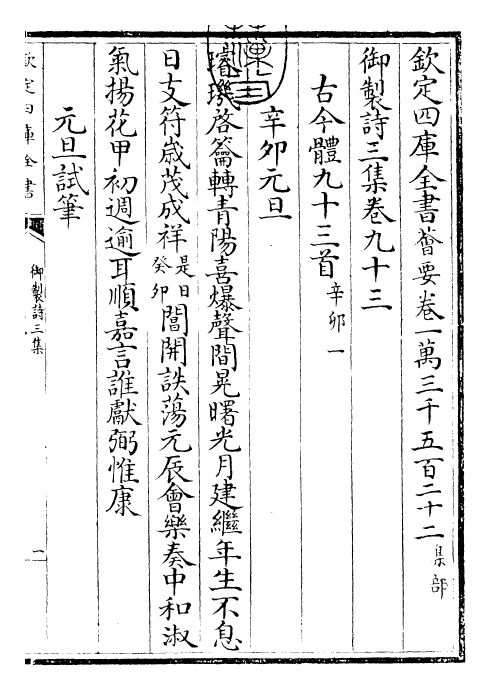 欽定四庫全書薈要卷一萬三千五百二十二 集部
御製詩三集卷九十三
古今體九十三首 辛卯一
辛卯元旦
璿璣啓籥轉青陽喜爆聲間晃曙光月建繼年生不息
日支符嵗茂成祥 是日癸卯 閶開詄蕩元辰會樂奏中和淑
氣揚花甲初週逾耳順嘉言誰獻弼惟康
元旦試筆
欽定四庫全書
御製詩三集